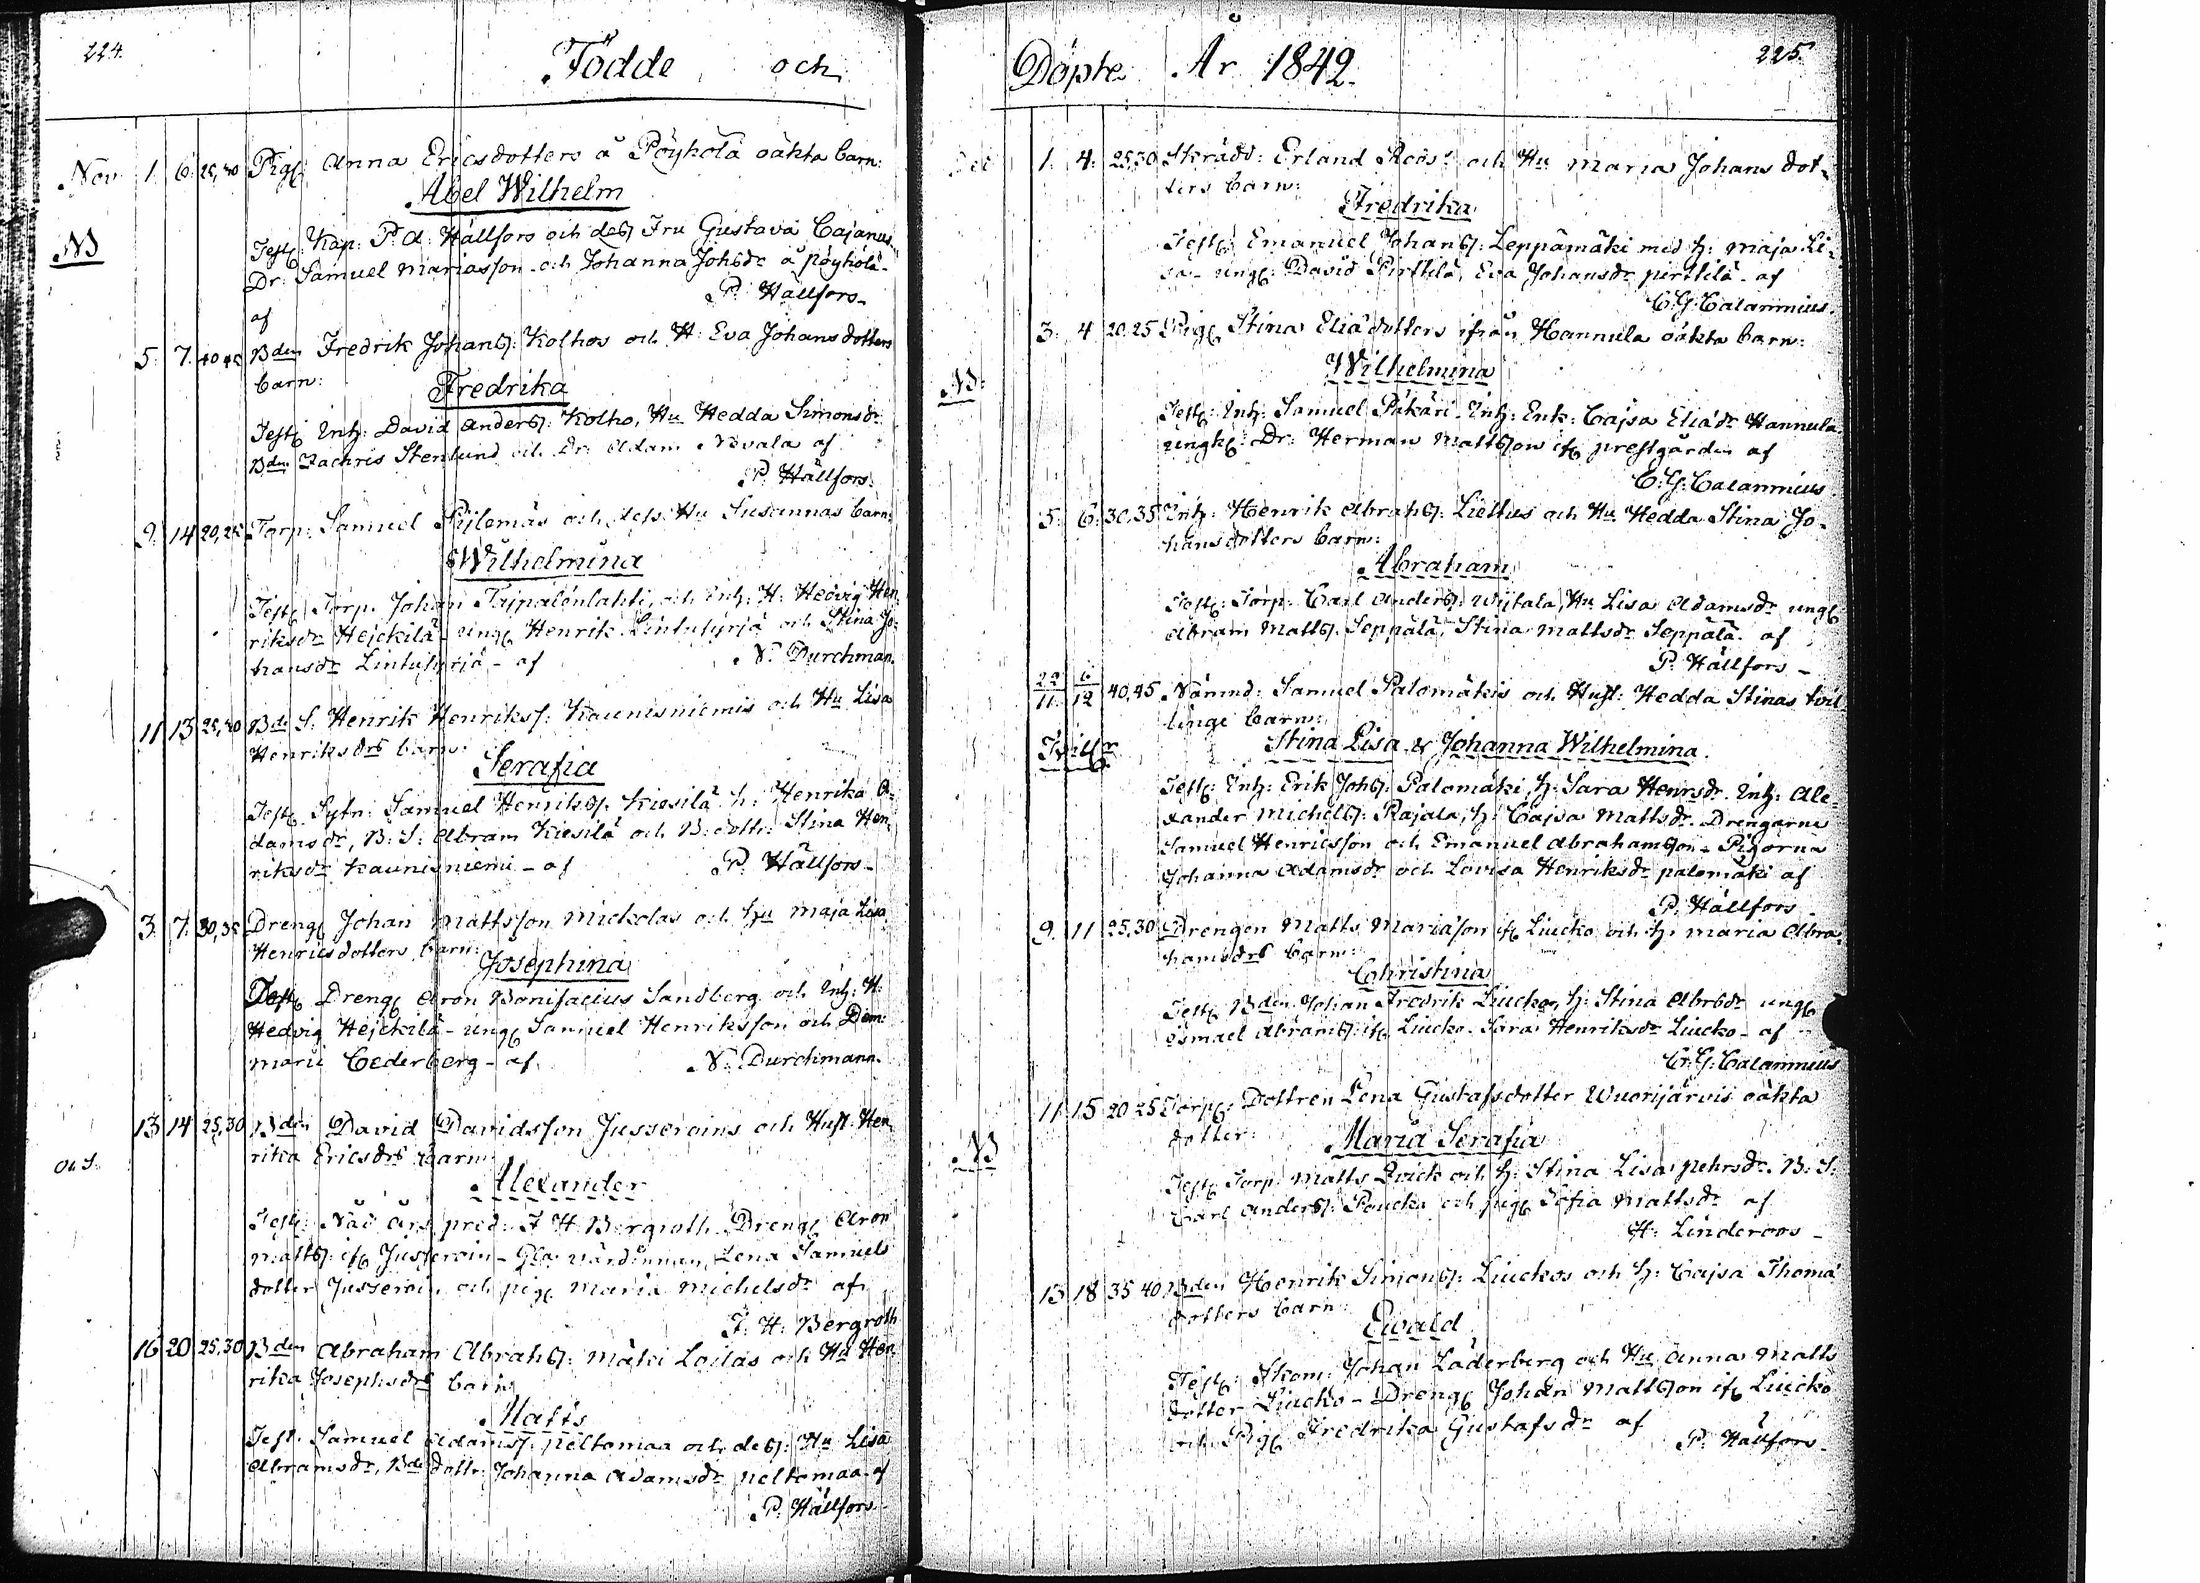 224.
Födde och
Nov 1. 6. 25,30 Pig. Anna Ericsdotters å Pöyhölä oäkta barn:
Abel Wilhelm
NB
Test: Kap: P. A: Hällfors och dess Fru Gustava Cajanus.
Dr: Samuel Mariasson och Johanna Johsdr å pöyhölä
af P. Hällfors
5. 7. 40,45 Bden Fredrik Johanss: Kolhos och H: Eva Johansdotters
barn: Fredrika
Test: Inh: David Anderss: Kolho, Hu Hedda Simonsdr
Bdn Zachris Stenlund och Dr: Adam af
P. Hällfors.
9. 14 20,25 Torp: Samuel och dess Hu Susannas barn:
Wilhelmina
Test: Torp. Johan och Inh: H: Hedvig Hen,
riksdr Hejckilä - ung: Henrik och Stina Jo,
hansdr - af N. Durchman.
11 13 25,30 Bde S. Henrik Henrikss: Kaunisniemis och Hu Lisa
Henriksdrs barn:
Serafia
Test: Sytn: Samuel Henrikss: Kiesilä h: Henrika A,
damsdr, B: S: Abram Kiesilä och B: dottr: Stina Hen,
riksdr Kaunisniemi - af P. Hällfors
3. 7. 30,35 Dreng: Johan Mattsson Mickolas och Hu Maja Lisa
Henricsdotters barn:
Josephina
Test: Dreng: Aron Bonifacius Sandberg och Inh: H:
Hedvig Hejckilä - ung: Samuel Henriksson och Dem:
Marie Cederberg - af. N. Durchmann.
13 14 25,30 Bden David Davidsson Jusseroins och Hust: Hen,
rika Ericsdrs barn:
Alexander
Test: Nåd års pred: F. H. Bergroth. Dreng: Aron
Matts: if: Jusseroin - värdinnan, Lena Samuels
dotter Jusseroin och pig: Maria Michelsdr af
F: H: Bergroth
16 20 25,30 Bden Abraham Abrahss: Mäki Loilas och Hu Hen,
rika Josephsdrs barn
Matts
Test: Samuel Adamss: peltomaa och dess: Hu Lisa
Abramsdr, Bde dottr: Johanna Adamsdr peltomaa af
P. Hällfors
225.
Döpte År 1842.
Dec 1. 4. 25,30 Skrädd: Erland Roos och Hu Maria Johansdot,
ters barn:
Fredrika
Test: Emanuel Johanss: Leppämäki med h: Maja Li,
sa - ung: David Pirttilä, Eva Johansdr pirttilä - af
C. G. Calamnius.
3. 4 20,25 Pig: Stina Eliädotters ifrån Hannula oäkta barn:
Wilhelmina
NB:
Test: Inh: Samuel Päkäri - Inh: Enk: Cajsa Eliädr Hannula
ungk: Dr: Herman Mattsson if: prestgården af
C. G. Calamnius
5. 6. 30,35 Inh: Henrik Abrahss: Liettus och Hu Hedda Stina Jo,
hansdotters barn:
Abraham
Test: Torp: Carl Anderss: Wijtala, Hu Lisa Adamsdr ung:
Abram Matts: Seppälä, Stina Mattsdr Seppälä. af
P. Hällfors -
22/11 6/12 40,45 Nämnd: Samuel Palomäkis och Hust: Hedda Stinas tvil
linge barn:
Stina Lisa & Johanna Wilhelmina.
Test: Inh: Erik Johss: Palomäki, h: Sara Henrsdr. Inh: Ale,
xander Michelss: Rajala, h: Cajsa Mattsdr. Drengarne
Samuel Henricsson och Emanuel Abrahamsson - Pigorna
Johanna Adamsdr och Lovisa Henriksdr palomäki af
P. Hällfors
9. 11 25,30 Drengen Matts Mariasson if: Liucko och h: Maria Abra,
hamsdrs barn:
Christina
Test: Bden Johan Fredrik Liucko, h: Stina Abrsdr ung:
Esmael Abramss: if: Liucko - Sara Henriksdr Liucko - af
C. G. Calamnius
11 15 20 25 Torp: Dottren Lena Gustafsdotter Wuorijärvis oäkta
dotter:
Maria Serafia
NB
Test: Torp: Matts Qvick och h: Stina Lisa pehrsdr. B: S:
Carl Anderss: Poucka och pig: Sofia Mattsdr af
H: Linderoos -
13 18 35 40 Bden Henrik Simonss: Liuckos och h: Cajsa Thomä
dotters barn:
Ewald
Test: Skom: Johan Läderberg och Hu Anna Matts
dotter Liucko - Dreng: Johan Mattsson if: Liucko
och Pig: Fredrika Gustafsdr af P. Hällfors